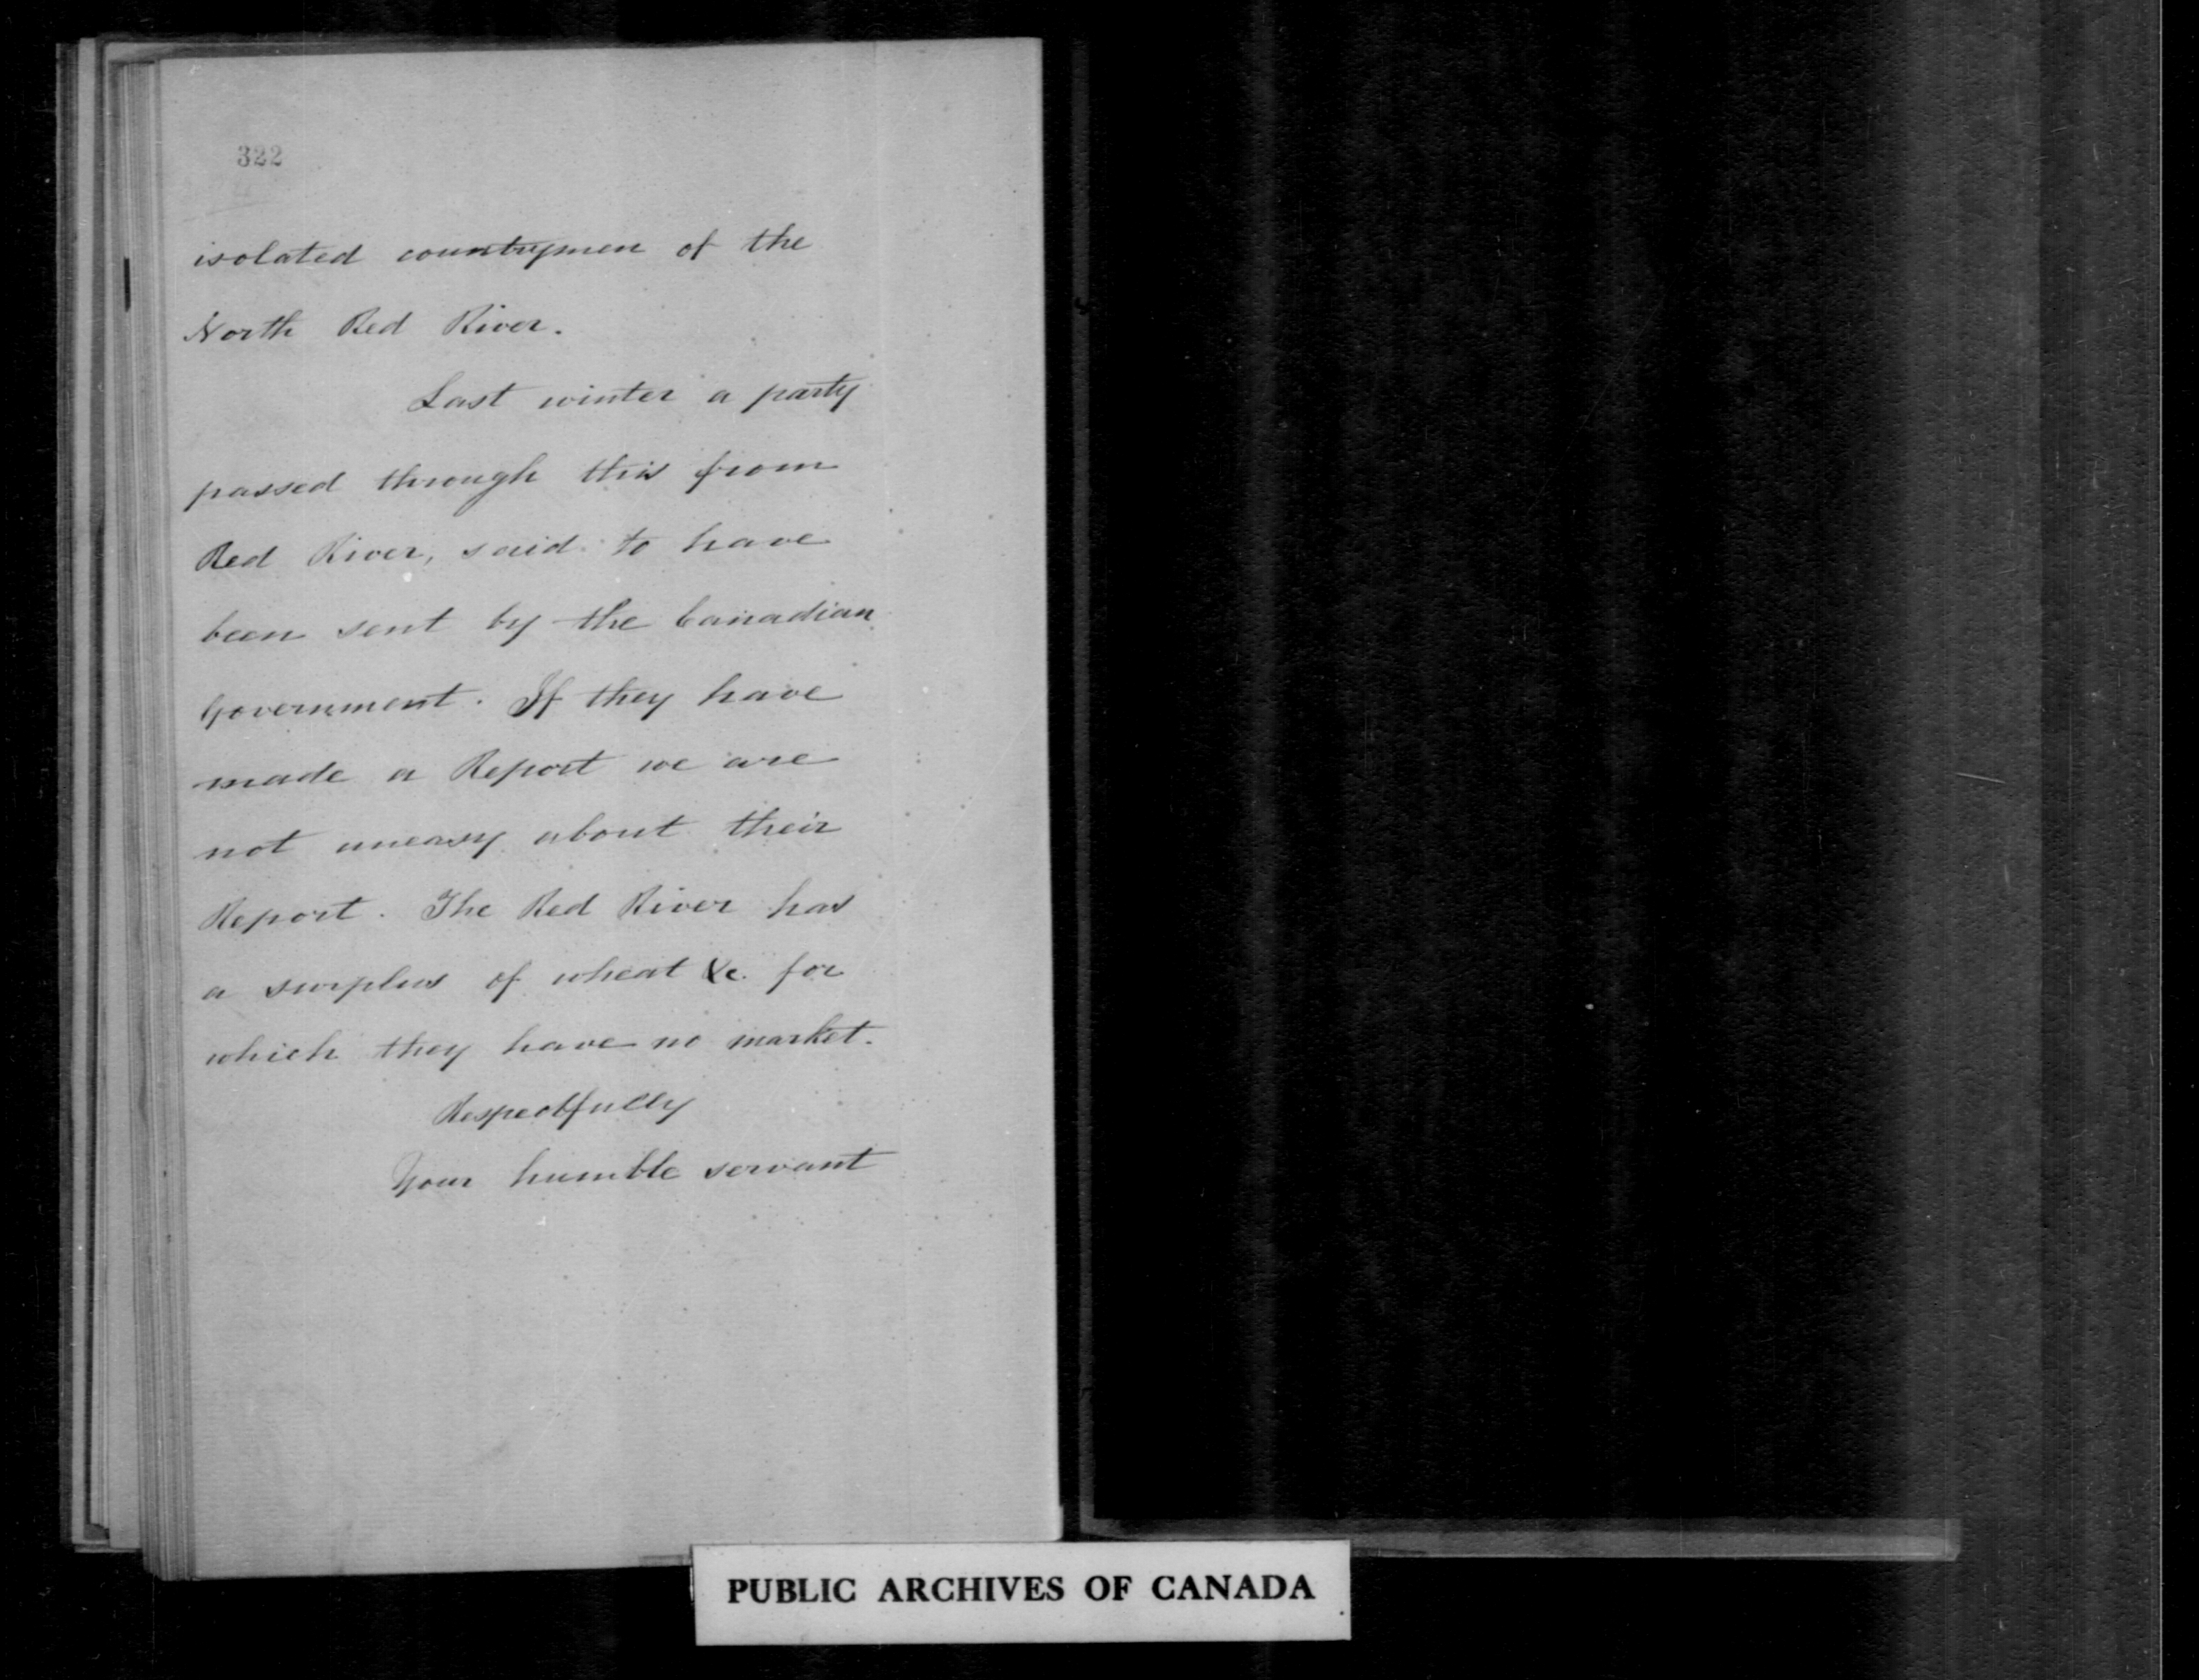 322
isolated countrymen of the
North Red River.
Last winter a party
passed through this from
Red River, said to have
been sent by the Canadian
Government. If they have
made a Report we are
not uneasy about their
Report. The Red River has
a surplus of wheat &c. for
which they have no market.
Respectfully
Your humble servant
PUBLIC ARCHIVES OF CANADA